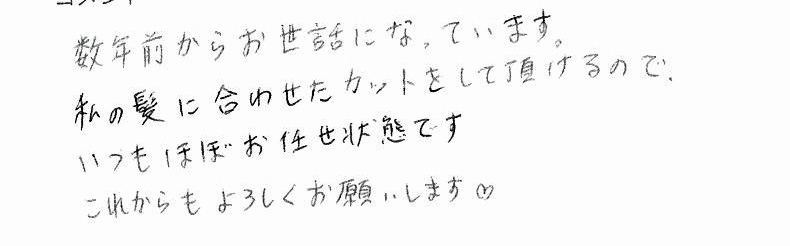 コメント
数年前からお世話になっています。
私の髪に合わせたカットをして頂けるので、
いつもほぼお任せ状態です
これからもよろしくお願いします♡